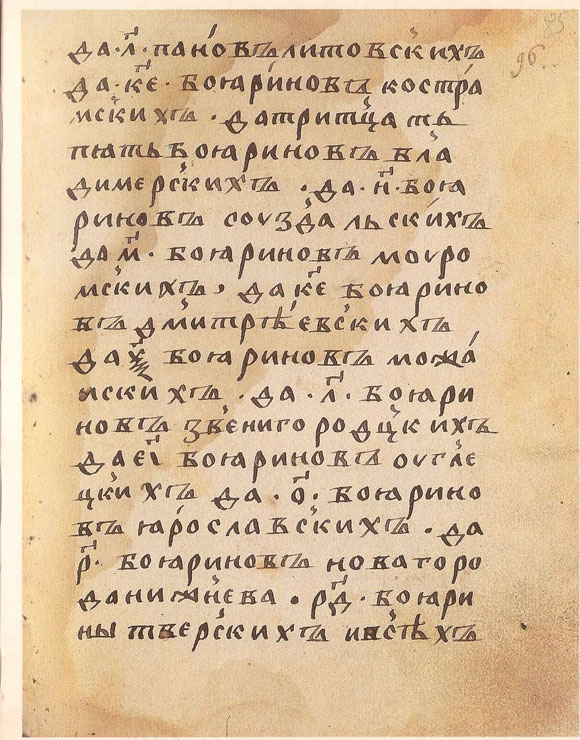 85
96
да·л҃·панѡвъ литовскихъ
да·к҃е·бояриновъ костра
мскихъ·да тритцать
пять бояриновъ вла
димерскихъ·да·н҃·боя
риновъ соуздальскихъ
да м҃·бояриновъ моуро
мскихъ, да к҃е боярино
въ дмитрѣевскихъ
да х҃ бояриновъ можа
искихъ·да·л҃·бояри
новъ звенигородцкихъ
да е҃і бояриновъ оугле
цкихъ да·о҃·боярино
въ ярославскихъ·да
р҃·бояриновъ новагоро
да нижнева·р҃д·бояри
ны тверскихъ и всѣхъ